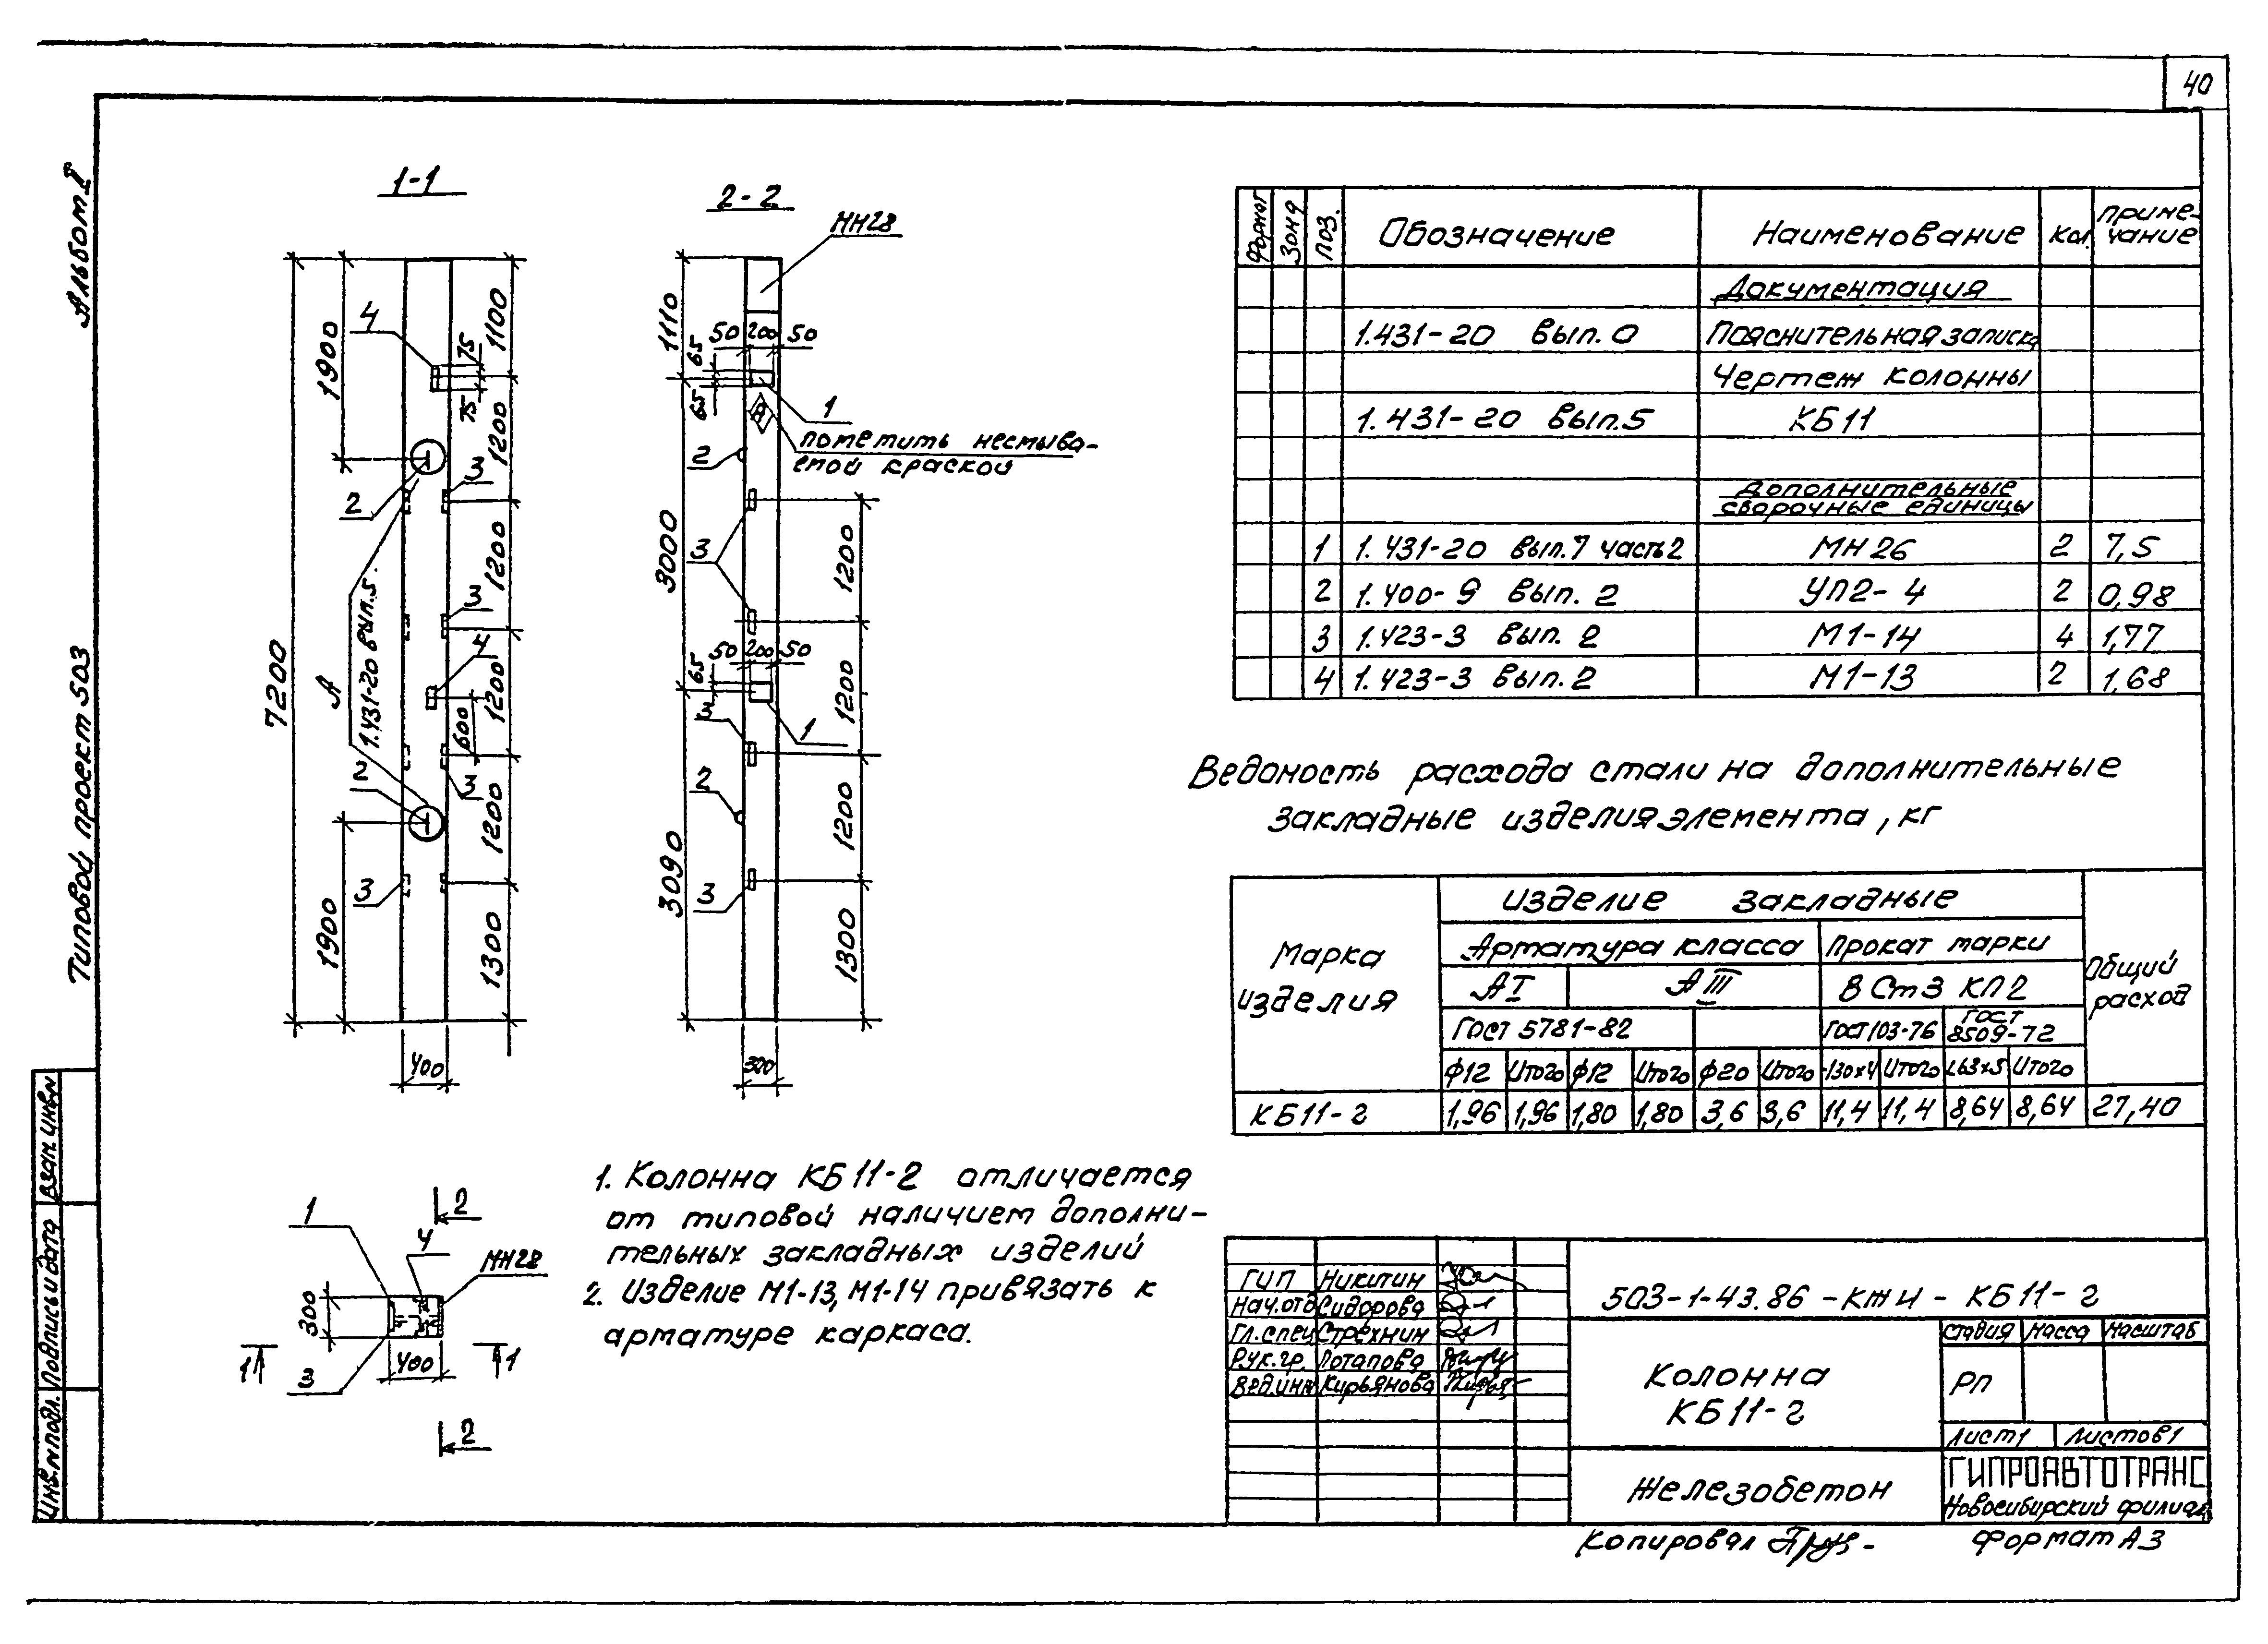 40
Альбом I
Типовой проект 503
Взам. инв.N
Подпись и дата
Инв.N подл.
1-1
7200
1900
1900
1100
75
75
1200
1200
1200
600
1200
1300
400
4
2
3
3
4
2
3
3
А
1.431-20 вып.5.
2-2
МН28
1110
3000
3090
50 200 50
65
65
1
пометить несмыва-
емой краской
2
3
1200
50 200 50
65
1200
3
1
2
1200
3
1300
300
1
4
2
МН28
300
400
3
1
1
2
1. Колонна КБ11-2 отличается
от типовой наличием дополни-
тельных закладных изделий
2. Изделие М1-13, М1-14 привязать к
арматуре каркаса.
Формат Зона Поз. Обозначение Наименование Кол. Приме-
чание
Документация
1.431-20 вып.0 Пояснительная записка
Чертеж колонны
1.431-20 вып.5 КБ11
Дополнительные
сборочные единицы
1 1.431-20 вып.7 часть2 МН26 2 7,5
2 1.400-9 вып. 2 УП2-4 2 0,98
3 1.423-3 вып. 2 М1-14 4 1,77
4 1.423-3 вып.2 М1-13 2 1,68
Ведомость расхода стали на дополнительные
закладные изделия элемента, кг
Марка
изделия
Изделие закладные
Общий
расход
Арматура класса Прокат марки
АI АIII ВСт3 КП2
ГОСТ 5781-82 ГОСТ103-76 ГОСТ
8509-72
ф12 Итого ф12 Итого ф20 Итого -130х4 Итого L63х5 Итого
КБ11-2 1,96 1,96 1,80 1,80 3,6 3,6 11,4 11,4 8,64 8,64 27,40
ГИП Никитин
Нач.отд Сидорова
Гл.спец Стрехнин
Рук.гр. Потапова
Вед.инж Кирьянова
503-1-43.86 -КЖИ - КБ11-2
Колонна
КБ11-2
Стадия Масса Масштаб
РП
Лист1 Листов1
Железобетон
ГИПРОАВТОТРАНС
Новосибирский филиал
Копировал
Формат А3